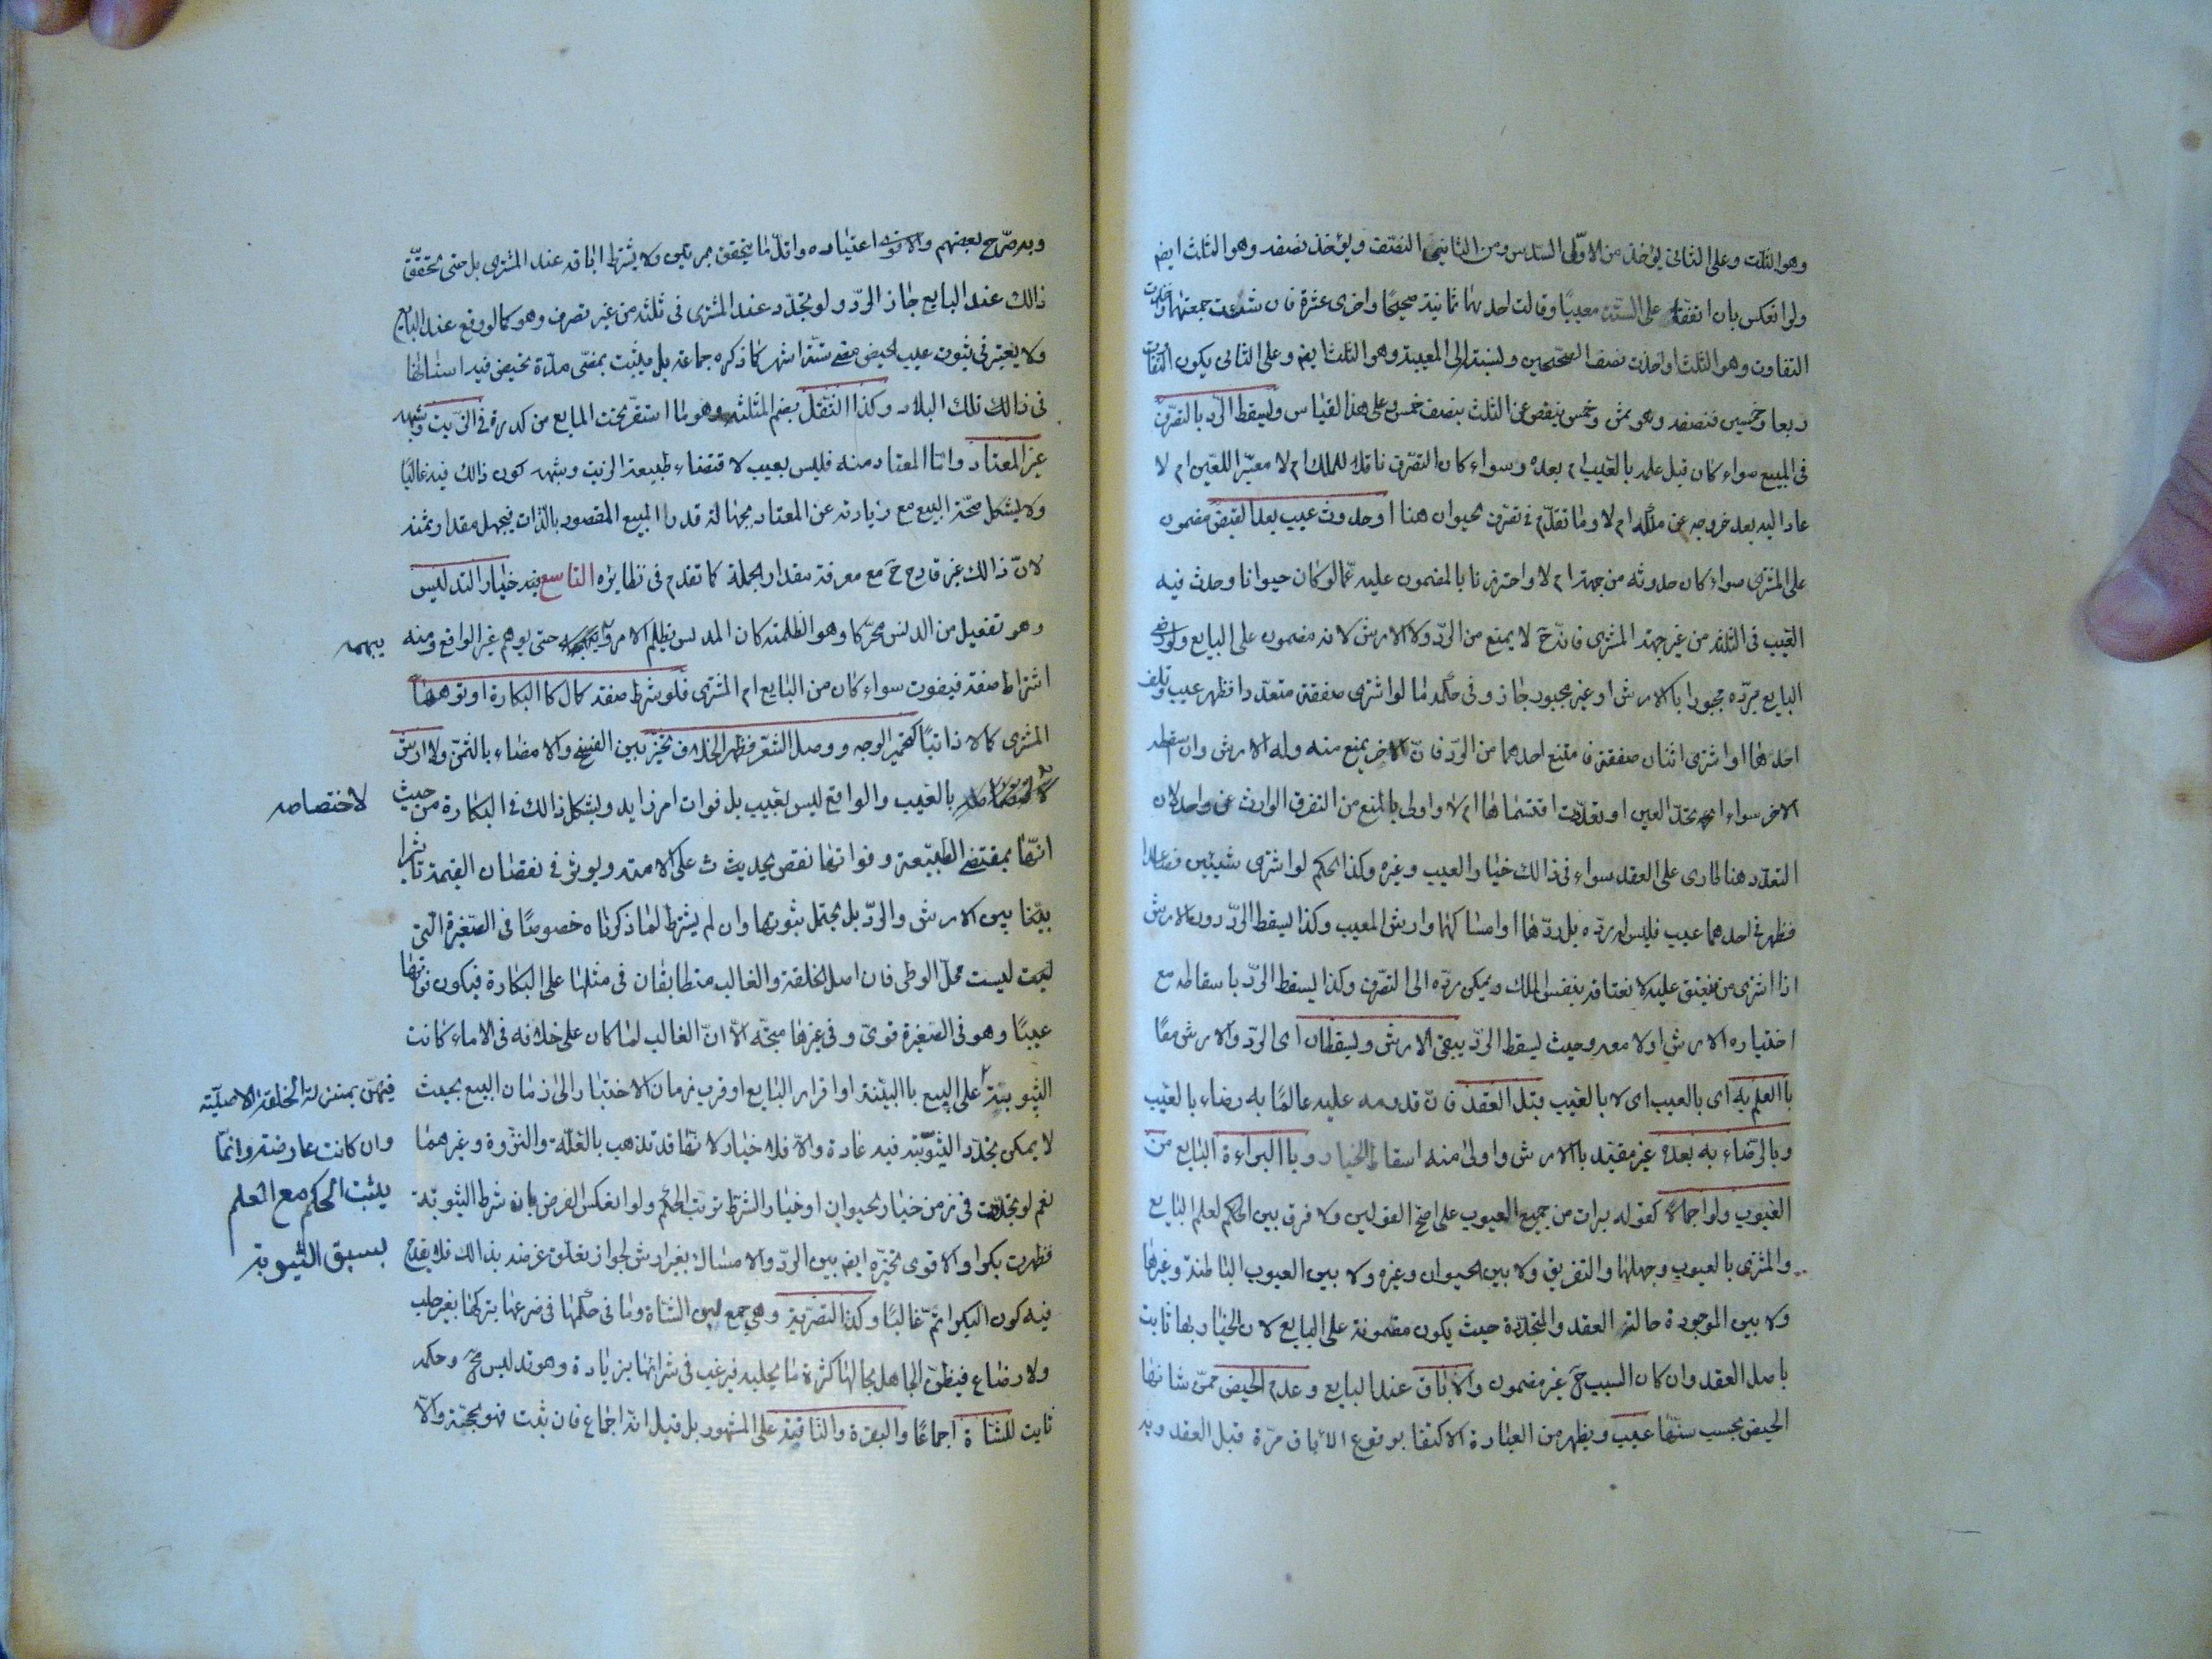 وهو الثلث وعلى الثانى يؤخذ من الاولى السدس ومن الثانية النصف ويؤخذ نصفه وهو الثلث ايضم
ولو انعكس بان اتفقتا على الستة معيبًا وقالت احديهما ثمانية صحيحًا واخرى عشرة فان شئت جمعتهما واخذت
التفاوت وهو الثلث او اخذت نصف الصحيحين ونسبته الى المعيبة وهو الثلث ايضم وعلى الثانى يكون التفاوت
ربعا وخمسين فنصفه وهو ثمن وخمس ينقص عن الثلث بنصف خمس وعلى هذا القياس ويسقط الرد بالتصرف
فى المبيع سواء كان قبل علمه بالعيب ام بعده وسواء كان التصرف ناقلا للملك ام لا مغيّرا للعين ام لا
عاد اليه بعد خروجه عن ملكه ام لا وما تقدّم فى تصرف الحيوان هنا او حدوث عيب بعد القبض مضمون
على المشترى سواء كان حدوثه من جهته ام لا واحترزنا بالمضمون عليه عمّا لو كان حيوانا وحدث فيه
العيب فى الثلثة من غير جهة المشترى فانه ح لا يمنع من الردّ ولا الارش لانه مضمون على البايع ولو رضى
البايع بردّه مجبورا بالارش او غير مجبور جاز وفى حكمه ما لو اشترى صفقة متعددا فظهر عيب وتلف
احدهما او اشترى اثنان صفقة فامتنع احدهما من الردّ فانّ الاخر يمنع منه وله الارش وان سقطه
الاخر سواء اتحد العين او تعدّدت اقتسماها ام لا واولى بالمنع من التفرق الوارث عن واحد لان
التعدد هنا طارى على العقد سواء فى ذالك خيار العيب وغيره وكذا الحكم لو اشترى شيئين فصاعدا
فظهر فى احدهما عيب فليس له ردّه بل ردّهما او امساكهما وارش المعيب وكذا يسقط الردّ دون الارش
اذا اشترى من ينعتق عليه لانعتاقه بنفس الملك ويمكن ردّه الى التصرّف وكذا يسقط الردّ باسقاطه مع
اختياره الارش او لا معه وحيث يسقط الردّ يبقى الارش ويسقطان اى الردّ والارش معًا
باالعلم به اى بالعيب اى لا بالعيب قبل العقد فانّ قدومه عليه عالمًا به رضاء بالعيب
وبالرّضاء به بعده غير مقيّد بالارش واولى منه اسقاط الخيار وباالبراءة البايع من
العيوب ولو اجمالًا كقوله برات من جميع العيوب على اصحّ القولين ولا فرق بين الحكم لعلم البايع
والمشترى بالعيوب وجهلهما والتفريق ولا بين الحيوان وغيره ولا بين العيوب الباطنة وغيرها
ولا بين الموجودة حالة العقد والمتجدّدة حيث يكون مضمونة على البايع لان الخيار بها ثابت
باصل العقد وان كان السبب ح غير مضمون والاباق عند البايع وعدم الحيض ممّن شانها
الحيض بحسب سنّها عيب ويظهر من العبارة الاكتفا بوقوع الاباق مرّة قبل العقد وبه
وبه صرّح بعضهم والاقوى اعتياده واقلّ ما يتحقق بمرتين ولا يشترط اباقه عند المشترى بل حتى تحقّق
ذالك عند البايع جاز الردّ ولو تجدّد عند المشترى فى ثلثه من غير تصرف وهو كما لو وقع عند البايع
ولا يعتبر فى ثبوت عيب الحيض مضى ستّة اشهر كما ذكره جماعة بل يثبت بمضى مدّة تحيض فيها اسنانها
فى ذالك تلك البلاد وكذا الثقل بضم المثلثه وهو ما استقرّ تحت المايع من كدرة فى الزيت وشبهه
غير المعتاد وامّا المعتاد منه فليس بعيب لاقتضاء طبيعة الزيت وشبهه كون ذالك فيه غالبًا
ولا يشكل صحّة البيع مع زيادته عن المعتاد بجهالة قدر المبيع المقصود بالذات فيجهل مقدار ثمنه
لانّ ذالك غير قادح ح مع معرفة مقدار الجملة كما تقدم فى نظايره التاسع فيه خيار التدليس
وهو تفعيل من الدلس محرّكا وهو الظلمة كان المدلس يظلم الامر ويبهمه حتى يوهم غير الواقع ومنه
يبهمه
اشتراط صفة فيفوت سواء كان من البايع ام المشترى فلو شرط صفة كمال كالبكارة او توهمها
المشترى كمالا ذاتيًا كتحمير الوجه ووصل الشعر فظهر الخلاف تخيّر بين الفسخ والامضاء بالثمن ولا ارش
بالعيب والواقع ليس بعيب بل فوات امر زايد ويشكل ذالك فى البكارة من حيث
لاختصاصه
انّها بمقتضى الطبيعة وفواتها نقص يحدث على الامة ويوثر فى نقصان القيمة تاثيرا
بيّنا بين الارش والردّ بل يحتمل ثبوتهما وان لم يشترط لما ذكرناه خصوصًا فى الصغيرة التى
ليست محلّ الوطى فان اصل الخلقة والغالب متطابقان فى مثلها على البكارة فيكون فواتها
عيبًا وهو فى الصغيرة قوىّ وفى غيرها متجه الّا انّ الغالب لما كان على خلافه فى الاماء كانت
الثيوبة على البيع باالبيّنة او اقرار البايع او قرب زمان الاختبار الى زمان البيع بحيث
فيهنّ بمنزلة الخلقة الاصليّة
وان كانت عارضة وانمّا
يثبت الحكم مع العلم
بسبق الثيوبة
لا يمكن تجدّد الثيوبّة فيه عادة والّا فلا خيار لانّها قد تذهب بالعلّة والنزوة وغيرهما
نعم لو تجدّدت فى زمن خيار الحيوان او خيار الشرط ترتب الحكم ولو انعكس الفرض بان شرط الثيوبة
فظهرت بكرا والاقوى تخيّره ايضم بين الردّ والامساك بغير ارش لجواز تعلّق غرضه بذالك فلا يقدح
فيه كون البكر اتمّ غالبًا وكذا التصرية وهى جمع لبن الشاة وما فى حكمها فى ضرعها بتركها بغير حلب
ولا رضاع فيظنّ الجاهل بحالها كثرة ما يحلبه فيرغب فى شرائها بزيادة وهو تدليس محرّم وحكمه
ثابت للشاة اجماعًا والبقرة والناقة على المشهور بل قيل انّه اجماع فان ثبت فهو الحجّة والّا